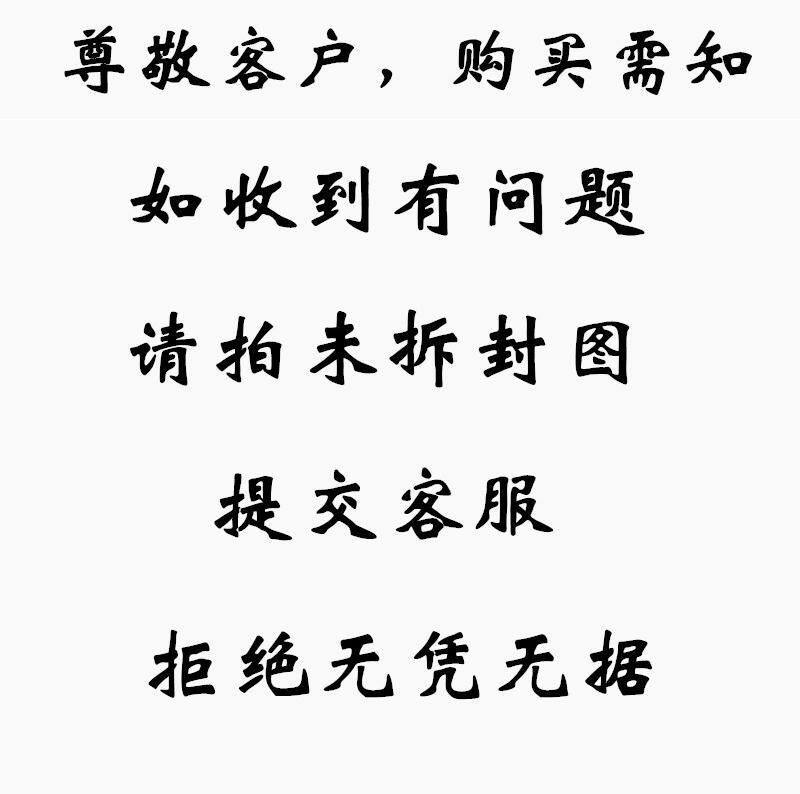 尊敬客户，购买需知
如收到有问题
请拍未拆封图
提交客服
拒绝无凭无据